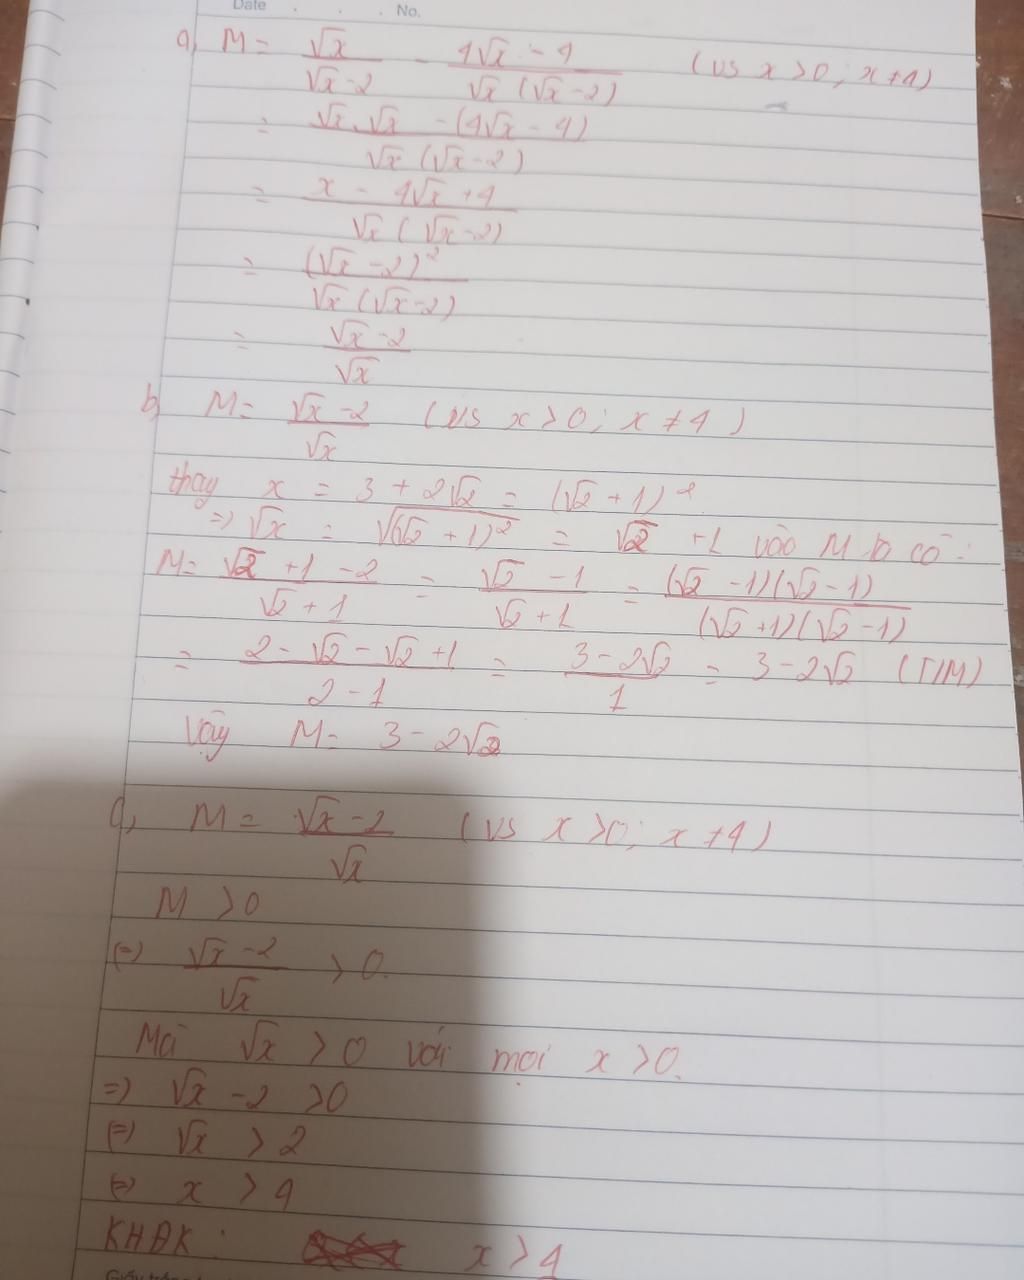 Date . . . No.
a, M = √x/(√x-2) - (4√x - 4)/(√x (√x-2)) (vs x > 0; x ≠ 4)
= (√x.√x - (4√x - 4))/(√x (√x-2))
= (x - 4√x + 4)/(√x (√x-2))
= (√x - 2)²/(√x (√x-2))
= (√x - 2)/√x
b, M = (√x - 2)/√x (vs x > 0; x ≠ 4)
thay x = 3 + 2√2 = (√2 + 1)²
=> √x = √((√2 + 1)²) = √2 + 1 vào M ta có :
M = (√2 + 1 - 2)/(√2 + 1) = (√2 - 1)/(√2 + 1) = ((√2 - 1)(√2 - 1))/((√2 + 1)(√2 - 1))
= (2 - √2 - √2 + 1)/(2 - 1) = (3 - 2√2)/1 = 3 - 2√2 (T/M)
Vậy M = 3 - 2√2
M = (√x - 2)/√x (vs x > 0; x ≠ 4)
M > 0
(=) (√x - 2)/√x > 0.
Mà √x > 0 với mọi x > 0.
=> √x - 2 > 0
(=) √x > 2
(=) x > 4
KHĐK : x > 4